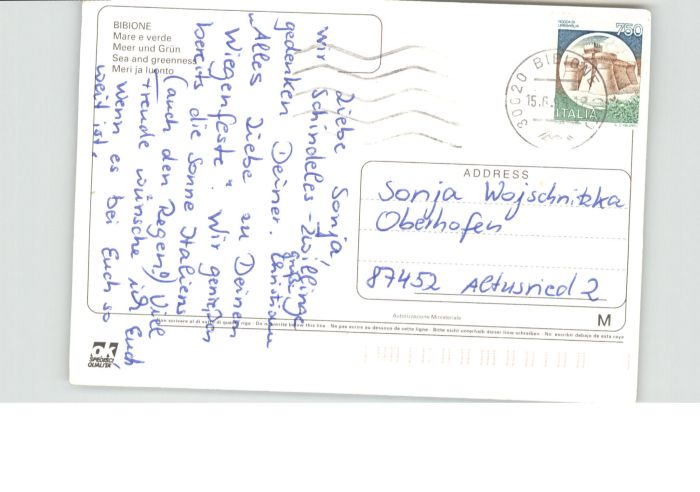 BIBIONE
Mare e verde
Meer und Grün
Sea and greenness
Meri ja luonto
Liebe Sonja,
wir Schindeles-Zwillinge
gedenken Deiner.
"Alles Liebe zu Deinem
Wiegenfeste". Wir genießen
bereits die Sonne Italiens
(auch den Regen!) Viel
Freude wünsche ich Euch
wenn es bei Euch so
weit ist.
Christiane
750
ITALIA
30020 BIBIONE
15.6.
ADDRESS
Sonja Wojschnitzka
Oberhofen
87452 Altusried 2
Autorizzazione Ministeriale
M
Non scrivere al di sotto di questa riga - Do not write below this line - Ne pas écrire au dessous de cette ligne - Bitte nicht unterhalb dieser linie schreiben - No escribir debajo de esta raya
ok
SPEDISCI
QUALITÀ